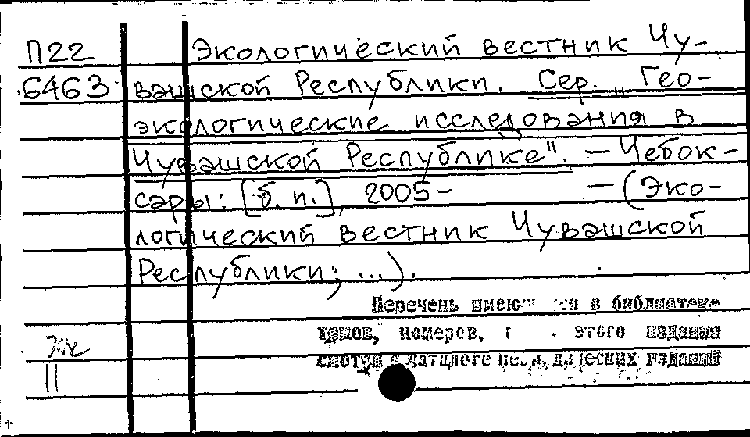 П22 Экологический вестник Чу-
6463 вашской Республики. Сер. "Гео-
экологические исследования в
Чувашской Республике". – Чебок-
сары: [б. и.], 2005- – (Эко-
логический вестник Чувашской
Республики; ...).
Перечень в библиотеке
томов, номеров, этого издания